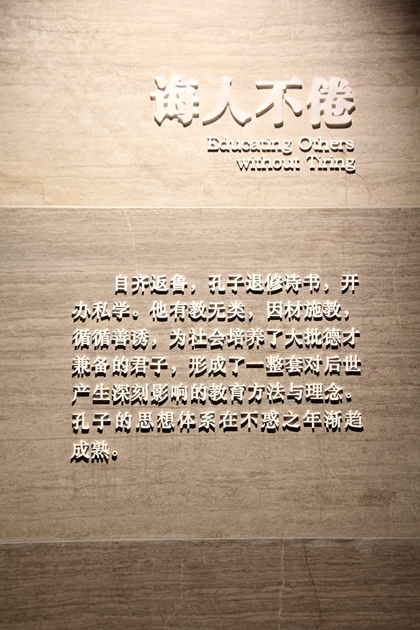 诲人不倦
Educating Others
without Tiring
自齐返鲁，孔子退修诗书，开
办私学。他有教无类，因材施教，
循循善诱，为社会培养了大批德才
兼备的君子，形成了一整套对后世
产生深刻影响的教育方法与理念。
孔子的思想体系在不惑之年渐趋
成熟。